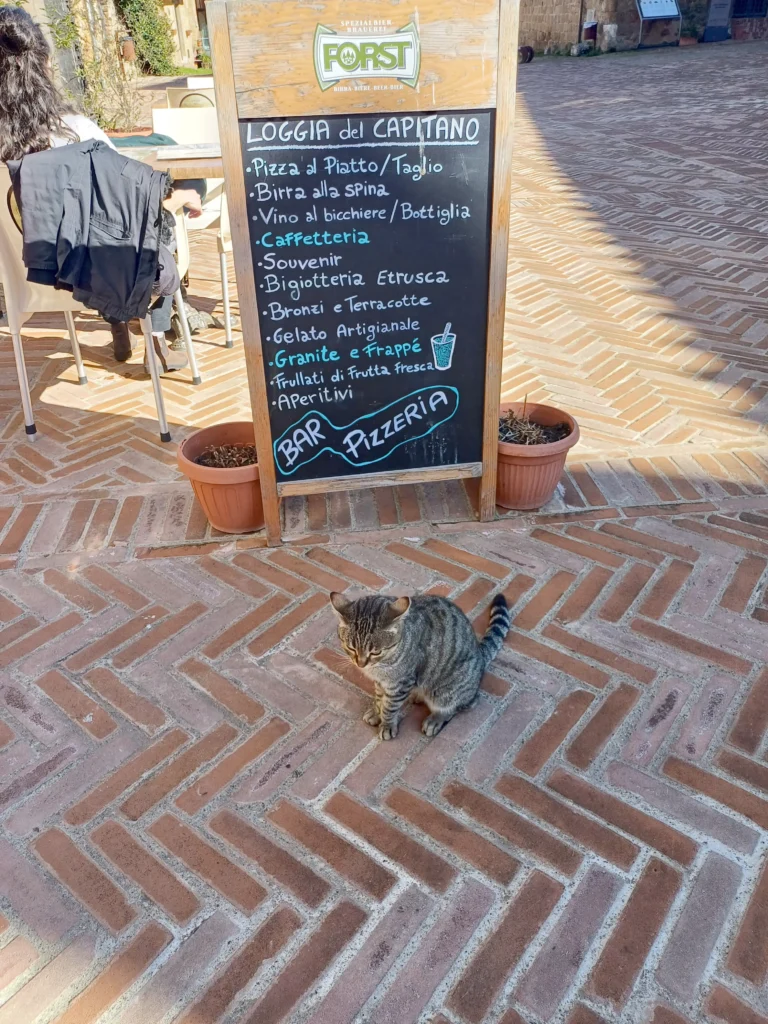 SPEZIALBIER
BRAUEREI
FORST
LOGGIA del CAPITANO
•Pizza al Piatto/Taglio
•Birra alla spina
•Vino al bicchiere/Bottiglia
•Caffetteria
•Souvenir
•Bigiotteria Etrusca
•Bronzi e Terracotte
•Gelato Artigianale
•Granite e Frappé
•Frullati di Frutta Fresca
•Aperitivi
BAR PizzeriA